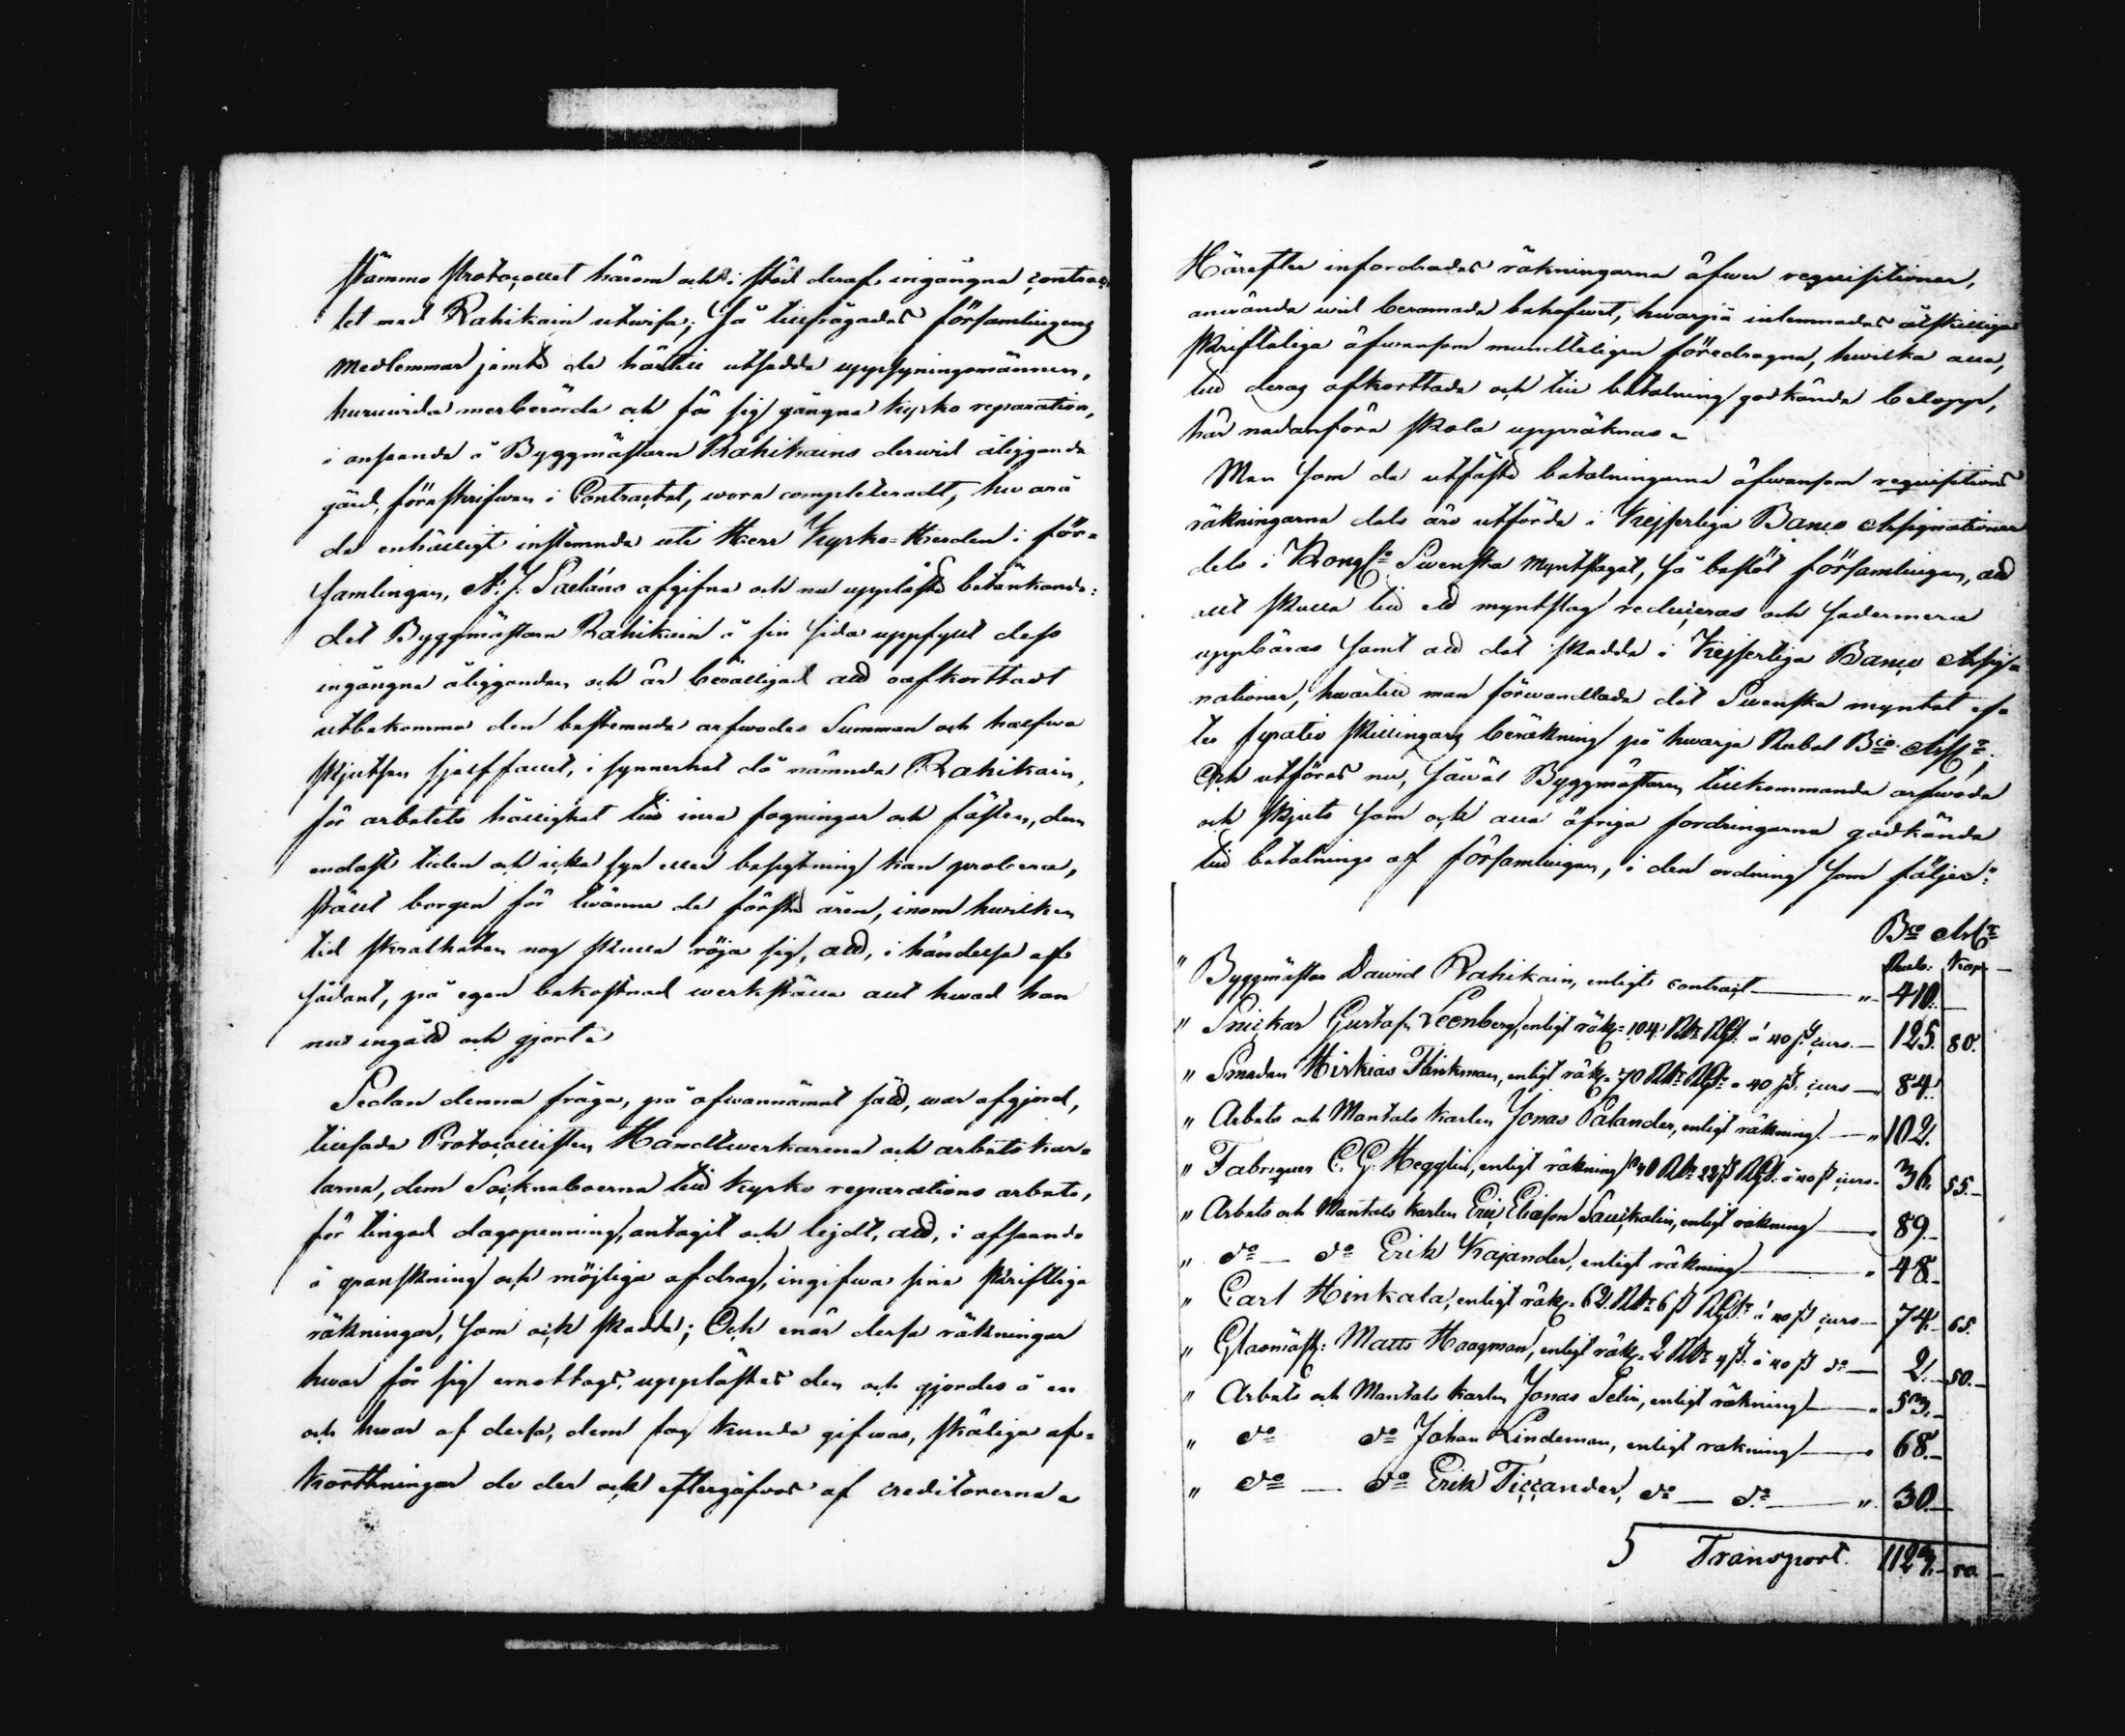 stämmo Protocollet härom och i stöd deraf ingångna contrac-
tet med Rahikain utwisa; Så tillfrågades församlingens
medlemmar jemte de härtill utsedde uppsyningsmännen,
huruvida merberörda och för sig gångna kyrko reparation,
i anseende å Byggmästarn Rahikains derwid åliggande
gärd, föreskrifwen i Contractet, wore completeradt, hwarå
de enhälligt instemnde uti Herr Kyrko-Herden i för-
samlingen, A: J: afgifne och nu uppläste betänkande:
det Byggmästarn Rahikain å sin sida uppfyllt dess
ingångne åligganden och är berättigad att oafkorttadt
utbekomma den bestemnde arfwodes Summan och halfwa
skjutsen sjelf fallet, i synnerhet då nämnde Rahikain,
för arbetets hållighet till inre fogningar och fästen, dem
endast tiden och icke syn eller besigtning kan probera,
ställt borgen för twänne de första åren, inom hwilken
tid skralheten nog skulle röja sig, att, i händelse af
sådant, på egen bekostnad werkställa allt hwad han
nu ingått och gjort.
Sedan denna fråga, på ofwannämnt sätt, war afgjord,
tillsade Protocollisten Handtwerkarene och arbetskar-
larne, dem Socknaboerne till kyrko reparations arbete,
för tingad dagspenning, antagit och lejdt, att, i afseende
å granskning och möjliga afdrag, ingifwa sine skriftliga
räkningar, som ock skedde; Och enär dessa räkningar
hwar för sig emottogs, upplästes den och gjordes å en
och hwar af dessa, dem fog kunde gifwas, skäliga af-
korttningar de der ock eftergåfvos af creditorerne.
Härefter infordrades räkningarna öfwer requisitioner,
använde wid beramade behofwet, hwarpå inlemnades åtskillige
skriftelige äfwensom mundteligen föredragne, hwilka alla,
till deras afkorttade och till betalning godkände belopp,
här nedanföre skola uppräknas.
Men som de utfäste betalningarne äfwensom requisitions
räkningarne dels äro utförde i Kejserliga Banco Assignationer
dels i Kongl: Swenska myntslaget, så beslöt församlingen, att
allt skulle till ett myntslag reduceras och sedermera
uppbäras samt att det skedde i Kejserliga Banco Assig-
nationer, hwartill man förwandlade det Swenska myntet ef-
ter fyratio skillingars beräkning på hwarje Rubel Bco Ass:;
Och utföras nu, såwäl Byggmästarn tillkommande arfwode
och skjuts som ock alla öfriga fordringarna godkände
till betalnings af församlingen, i den ordning som följer:
Bco Ass:
Rub: Kop
" Byggmästar Dawid Rahikain, enligt contract — " 410. —
" Snickar Gustaf Leenberg, enligt räk: 104. Rdr Rgs. á 40 ß curs. — 125. 80.
" Smeden Hiskias Flinkman, enligt räk: 70 Rdr Rgs á 40 ß. curs — 84.
" Arbets och Mantals karlen Jonas Palander, enligt räkning — " 102.
" Fabriquen C. G. Hegglin, enligt räkning 40 Rdr 22 ß Rgs á 40 ß curs. 36. 55. —
" Arbets och Mantals karlen Eric Eliasson enligt räkning — " 89. —
" do — do Erik Kajander, enligt räkning — " 48. —
" Carl Hinkala, enligt räk: 62. Rdr 6 ß Rgs á 40 ß curs — 74. 65.
" Glasmäst: Matts Haagman, enligt räk: 2 Rdr 4 ß. á 40 ß do — 2. 50. —
" Arbets och Mantals karlen Jonas Pelin, enligt räkning — " 53. —
" do do Johan Lindeman, enligt räkning — " 68. —
" do — do Erik Ticcander, do — do — " 30. —
Transport. 1123. 50 —